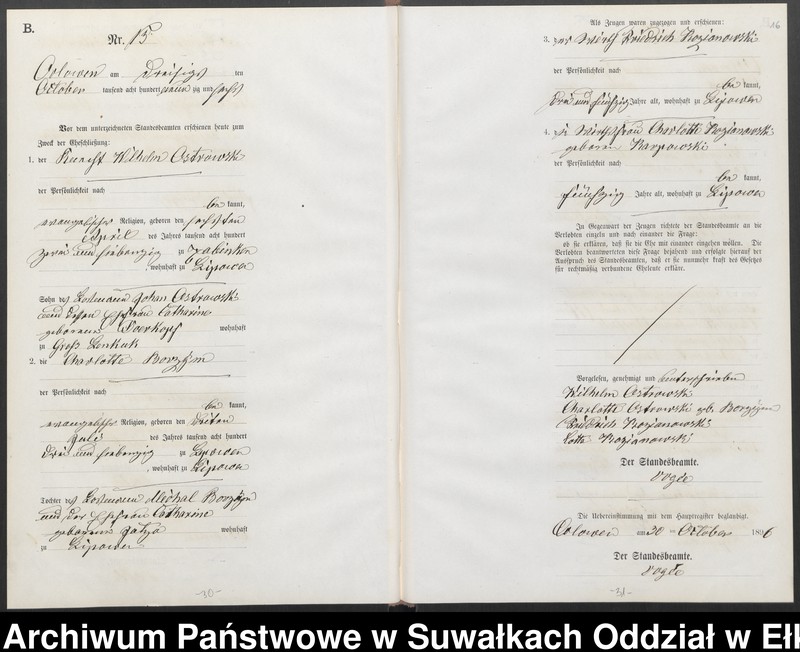 B.
Nr. 15
Czlowen am Dreißigsten
October tausend acht hundert neunzig und sechs
Vor dem unterzeichneten Standesbeamten erschienen heute zum
Zweck der Eheschließung:
1. der Knecht Wilhelm Ostrowski
der Persönlichkeit nach
be kannt,
evangelischer Religion, geboren den sechsten
April des Jahres tausend acht hundert
zwei und siebenzig zu
, wohnhaft zu Lipowen
Sohn des Losmann Johan Ostrowski
und dessen Ehefrau Catharine
geborene wohnhaft
zu Groß Lenkuk
2. die Charlotte Borzym
der Persönlichkeit nach
be kannt,
evangelischer Religion, geboren den Dritten
Juli des Jahres tausend acht hundert
drei und siebenzig zu Lipowen
, wohnhaft zu Lipowen
Tochter des Losmann Michal Borzym
und der Ehefrau Catharine
geborene wohnhaft
zu Lipowen
-30-
16
Als Zeugen waren zugezogen und erschienen:
3. der Wirth Friedrich Rozianowski
der Persönlichkeit nach
be kannt,
drei und fünfzig Jahre alt, wohnhaft zu Lipowen
4. die Wirthsfrau Charlotte Rozianowski
geborene Karpowski
der Persönlichkeit nach
be kannt,
fünfzig Jahre alt, wohnhaft zu Lipowen
In Gegenwart der Zeugen richtete der Standesbeamte an die
Verlobten einzeln und nach einander die Frage:
ob sie erklären, daß sie die Ehe mit einander eingehen wollen. Die
Verlobten beantworteten diese Frage bejahend und erfolgte hierauf der
Ausspruch des Standesbeamten, daß er sie nunmehr kraft des Gesetzes
für rechtmäßig verbundene Eheleute erkläre.
Vorgelesen, genehmigt und unterschrieben
Wilhelm Ostrowski
Charlotte Ostrowski geb. Borzym
Friedrich Rozianowski
Lotte Rozianowski
Der Standesbeamte.
Vogee
Die Uebereinstimmung mit dem Hauptregister beglaubigt.
Czlowen am 30 ten October 1896
Der Standesbeamte.
Vogee
-31-
Archiwum Państwowe w Suwałkach Oddział w Ełk